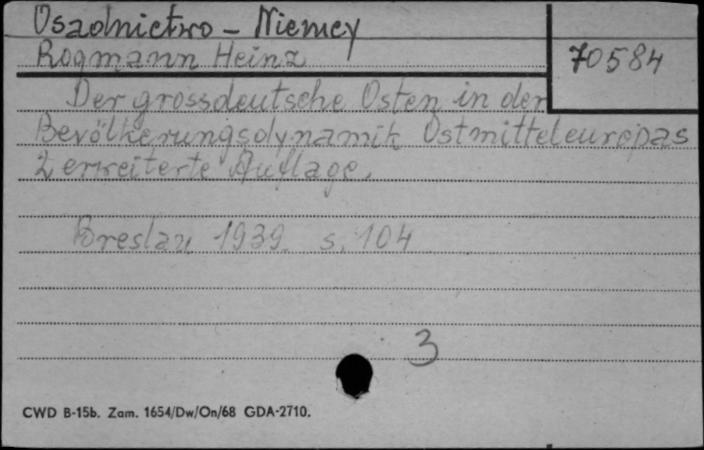 Osadnictwo - Niemcy
Rogmann Heinz
70584
Der grossdeutsche Osten in der
Bevölkerungsdynamik Ostmitteleuropas
2 erweiterte Auflage.
Breslau 1939 s. 104
3
CWD B-15b. Zam. 1654/Dw/On/68 GDA-2710.